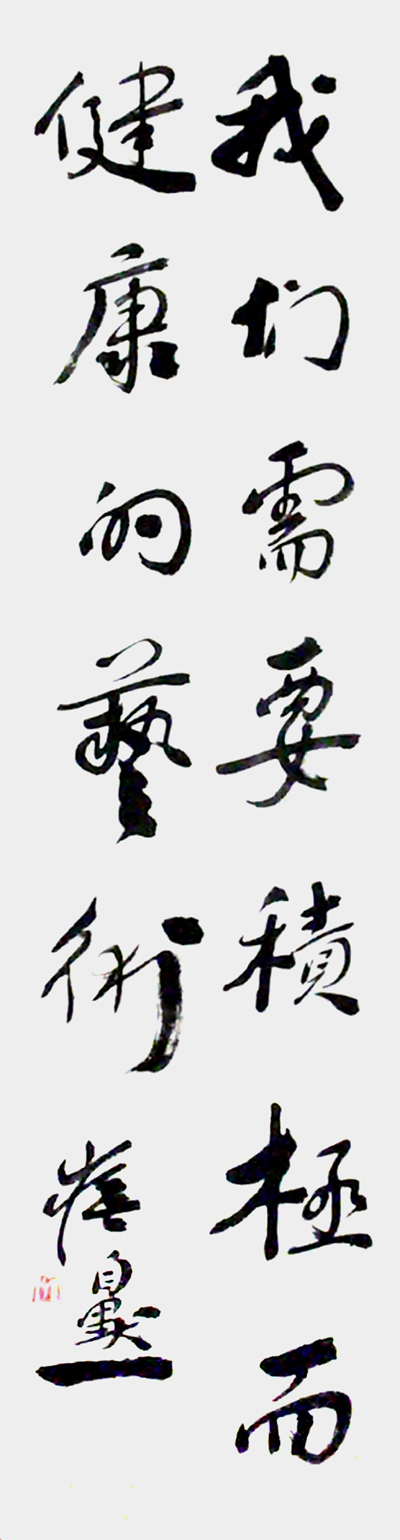 我们需要積極而
健康的藝術